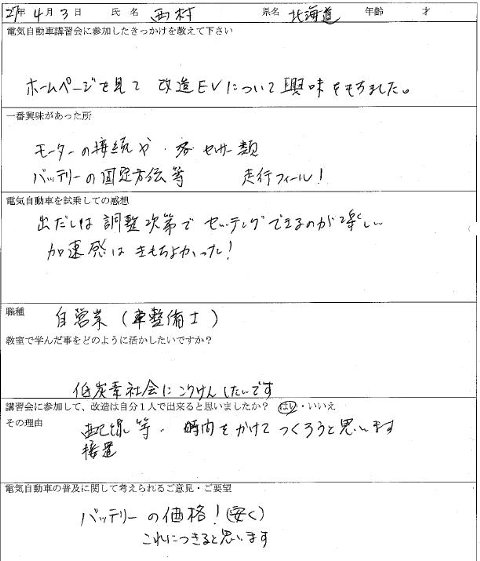 27年 4月 3日 氏名 西村 県名 北海道 年齢 才
電気自動車講習会に参加したきっかけを教えて下さい
ホームページを見て 改造EVについて興味をもちました。
一番興味があった所
モーターの接続や 各センサー類
バッテリーの固定方法等 走行フィール!
電気自動車を試乗しての感想
出だしは調整次第でセッティングできるのが楽しい
加速感はきもちよかった!
職種
自営業(車整備士)
教室で学んだ事をどのように活かしたいですか?
低炭素社会にこうけんしたいです
講習会に参加して、改造は自分1人で出来ると思いましたか? はい・いいえ
その理由
配線等、時間をかけてつくろうと思います
電気自動車の普及に関して考えられるご意見・ご要望
バッテリーの価格!(安く)
これにつきると思います